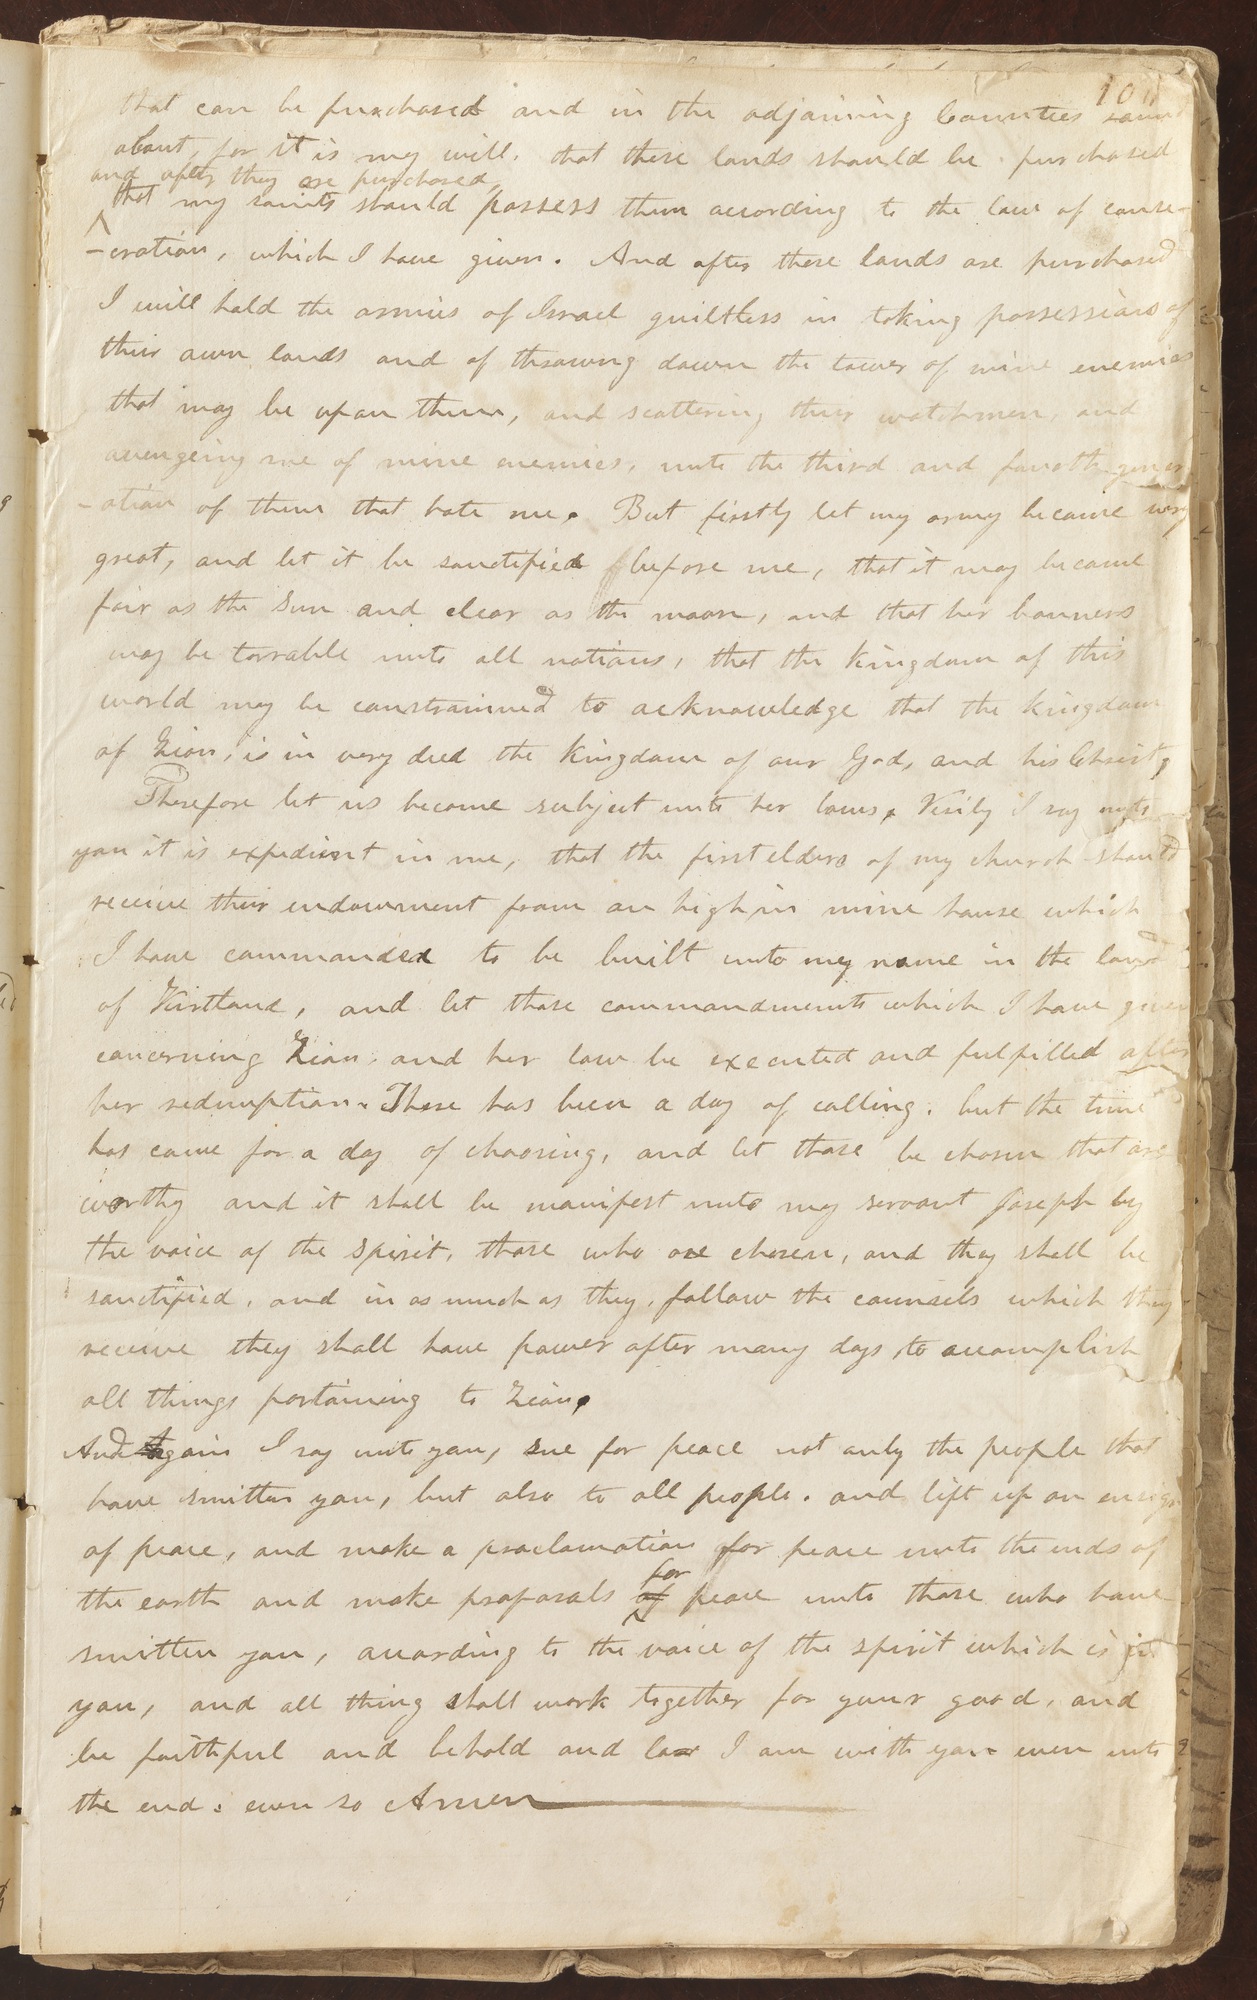 101
that can be purchased and in the adjoining Counties round
about, for it is my will. that these lands should be purchased
and after they are purchased,
that my saints should possess them according to the law of conse-
-cration, which I have given. And after these lands are purchased
I will hold the armies of Israel guiltless in taking possession of
their own lands and of throwing down the tower of mine enemies
that may be upon them, and scattering their watchmen, and
avengeing me of mine enemies, unto the third and fourth gener-
-ation of them that hate me. But firstly let my army become very
great, and let it be sanctified before me, that it may become
fair as the sun and clear as the moon, and that her banners
may be terrable unto all nations, that the kingdom of this
world may be constrainned to acknowledge that the kingdom
of Zion, is in very deed the kingdom of our God, and his Christ,
Therefore let us become subject unto her laws. Verily I say unto
you it is expedient in me, that the first elders of my church should
receive their endowment from on high in mine house which
I have commanded to be built unto my name in the land
of Kirtland, and let those commandments which I have given
concerning Zion and her law be executed and fulfilled after
her redemption. There has been a day of calling. but the time
has come for a day of choosing, and let those be chosen that are
worthy and it shall be manifest unto my servant Joseph by
the voice of the spirit, those who are chosen, and they shall be
sanctified, and in as much as they, follow the counsels which they
receive they shall have power after many days, to accomplish
all things partaining to Zion.
And again I say unto you, sue for peace not only the people that
have smitten you, but also to all people. and lift up an ensign
of peace, and make a proclamation for peace unto the ends of
for
the earth and make proposals of peace unto those who have
smitten you, according to the voice of the spirit which is in
you, and all thing shall work together for your good, and
be faithful and behold and lo I am with you even unto
the end. even so Amen